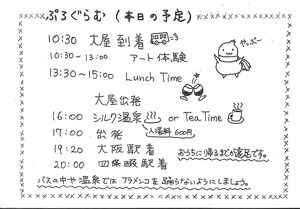 ぷろぐらむ (本日の予定)
10:30 大屋到着
やっぷー
10:30~13:00 アート体験
13:30~15:00 Lunch Time
大屋出発
16:00 シルク温泉 or Tea Time
入浴料 600円
17:00 出発
19:20 大阪駅着
おうちに帰るまでが遠足です。
20:00 四条畷駅着
バスの中や温泉ではフラメンコを踊らないようにしましょう。